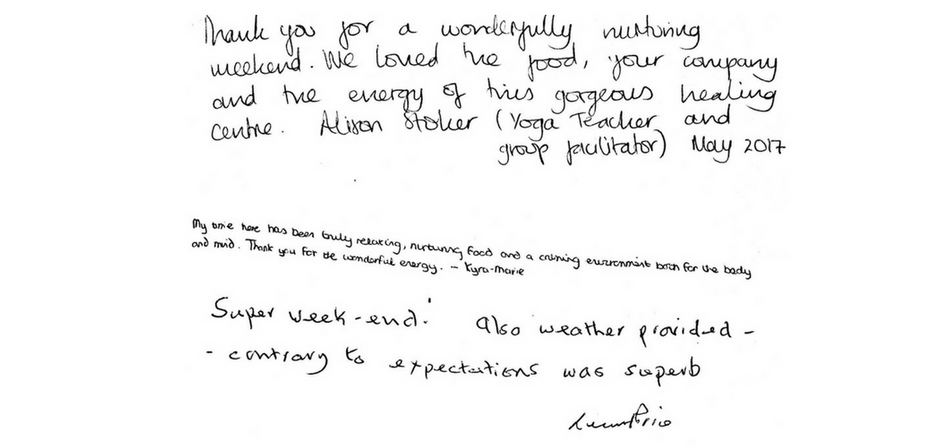 Thank you for a wonderfully nurturing
weekend. We loved the food, your company
and the energy of this gorgeous healing
centre. Alison Stoker (Yoga Teacher and
group facilitator) May 2017
My time here has been truly relaxing, nurturing food and a calming environment both for the body
and mind. Thank you for the wonderful energy. – Kyra-Marie
Super week-end! Also weather provided -
- contrary to expectations was superb